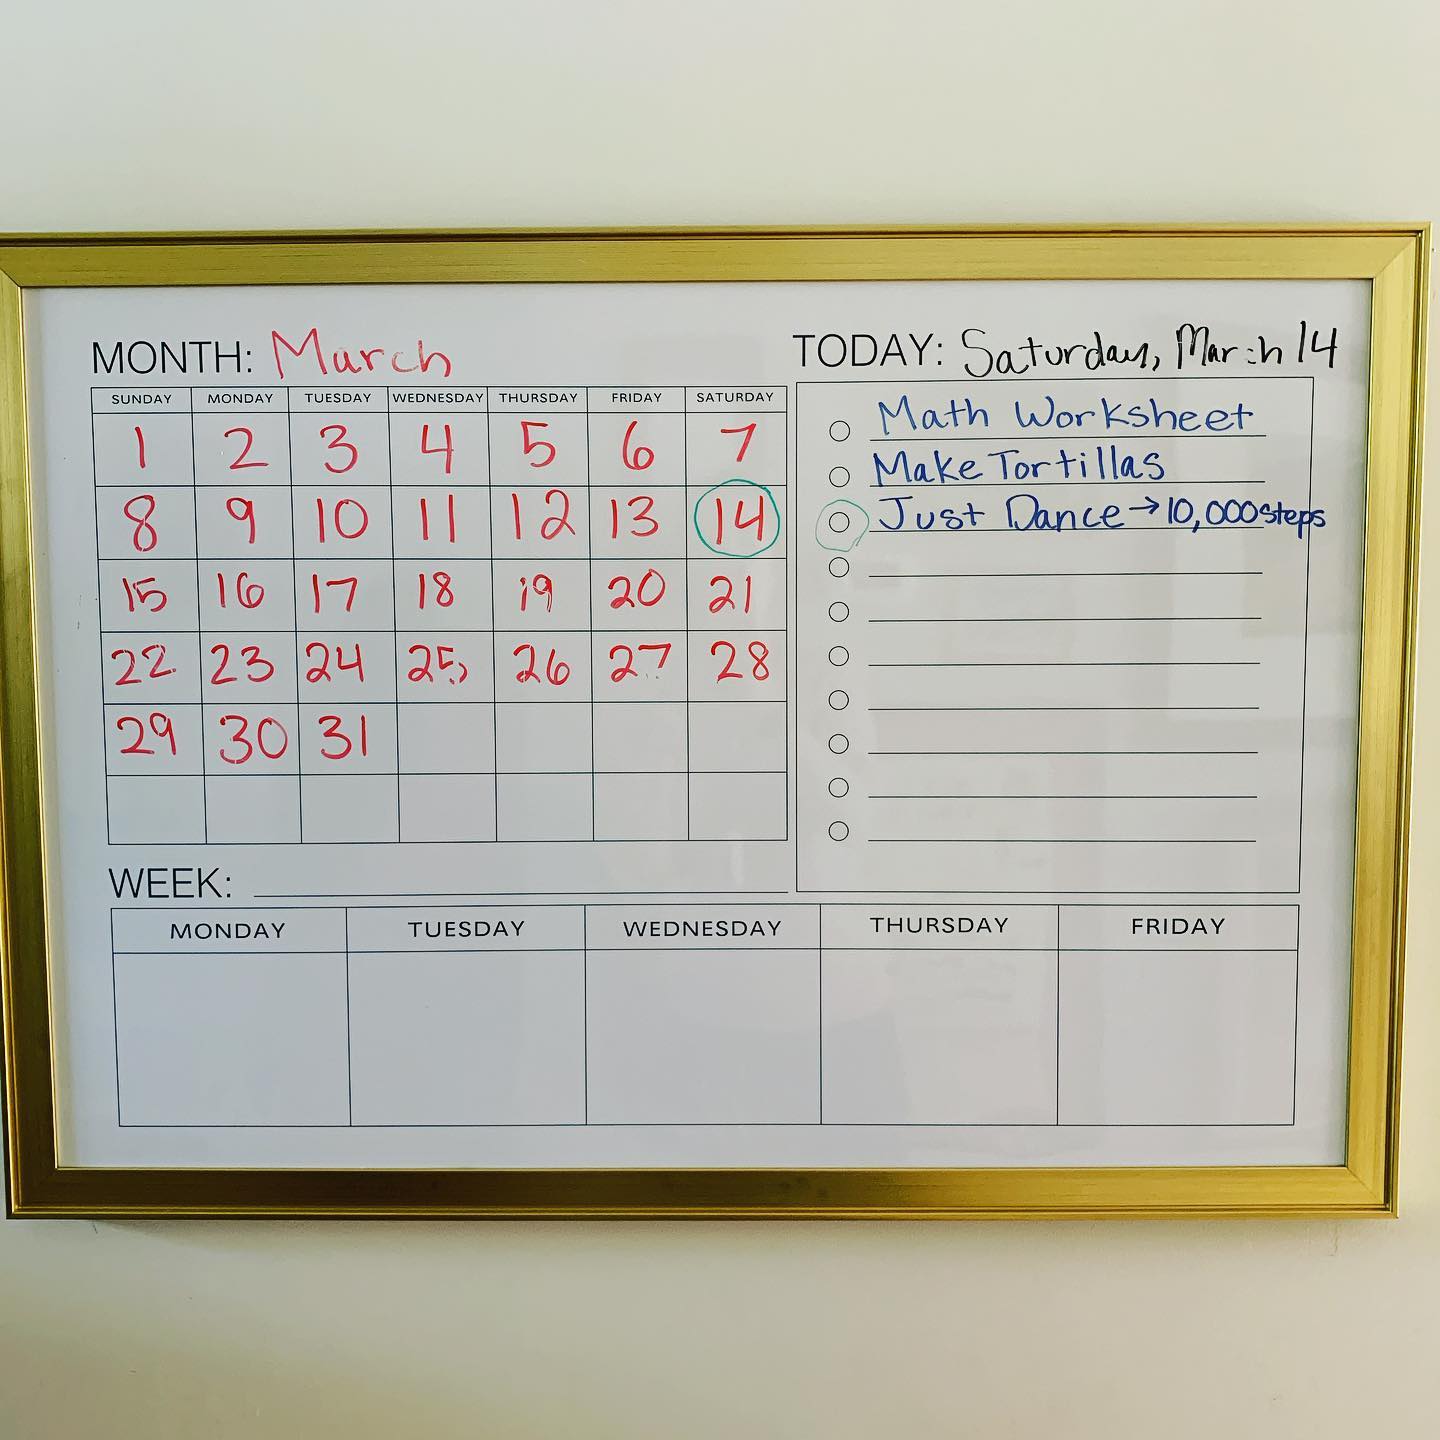 MONTH: March
SUNDAY MONDAY TUESDAY WEDNESDAY THURSDAY FRIDAY SATURDAY
1 2 3 4 5 6 7
8 9 10 11 12 13 14
15 16 17 18 19 20 21
22 23 24 25 26 27 28
29 30 31
TODAY: Saturday, March 14
Math Worksheet
Make Tortillas
Just Dance → 10,000 steps
WEEK:
MONDAY TUESDAY WEDNESDAY THURSDAY FRIDAY